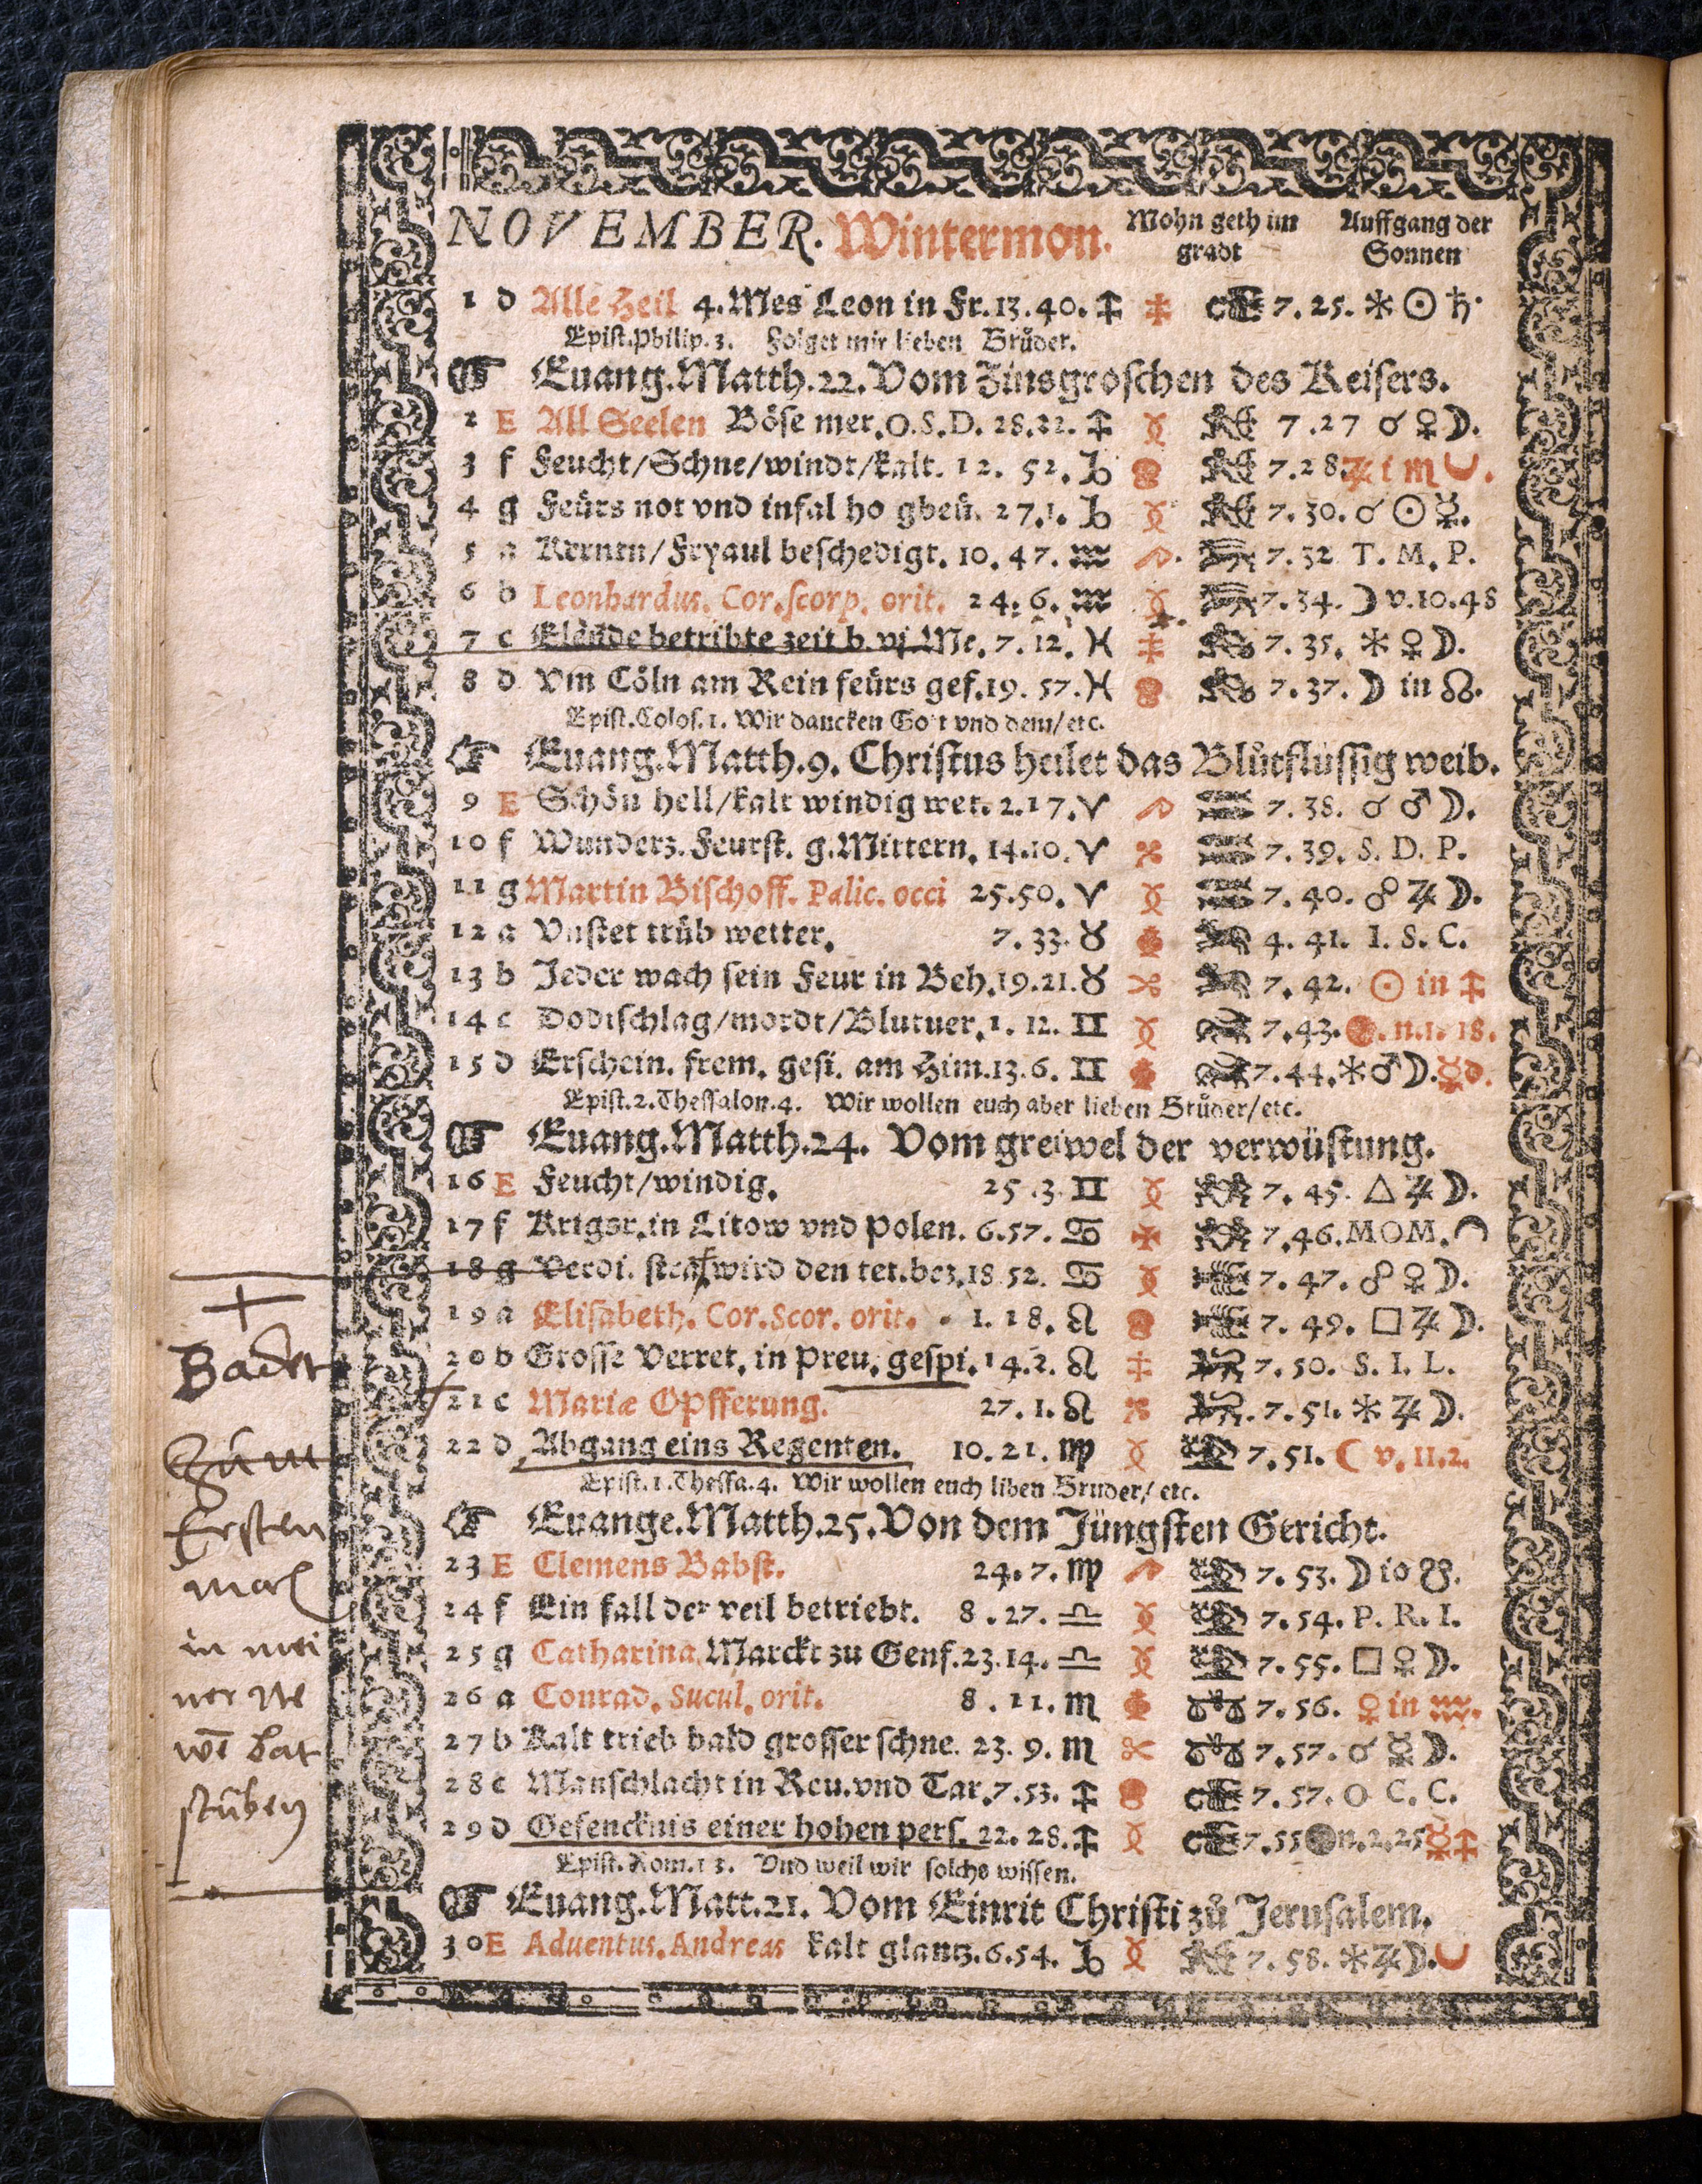 NOVEMBER. Wintermon. Mohn geth im gradt Auffgang der Sonnen
1 d Alle Heil 4. Mes Leon in Fr. 13. 40. ♐ 7. 25. ⚹ ☉ ♄.
Epist. Philip. 3. Folget mir lieben Brůder.
☞ Euang. Matth. 22. Vom Zinsgroschen des Keisers.
2 E All Seelen Böse mer. O. S. D. 28. 22. ♐ 7. 27 ☌ ♀ ☽.
3 f Feucht/Schne/windt/kalt. 12. 52. ♑ 7. 28. ♃ i ♏
4 g Feürs not vnd infal ho gbeü. 27. 1. ♑ 7. 30. ☌ ☉ ☿.
5 a Kerntn/Fryaul beschedigt. 10. 47. ♒ 7. 32 T. M. P.
6 b Leonhardus. Cor. scorp. orit. 24. 6. ♒ 7. 34. ☽ v. 10. 48
7 c Elende betribte zeit b. vj. Me. 7. 12. ♓ 7. 35. ⚹ ♀ ☽.
8 d vm Cöln am Rein feürs gef. 19. 57. ♓ 7. 37. ☽ in ☊.
Epist. Colos. 1. Wir dancken Gott vnd dem/etc.
☞ Euang. Matth. 9. Christus heilet das Blůtflüssig weib.
9 E Schön hell/kalt windig wet. 2. 17. ♈ 7. 38. ☌ ♂ ☽.
10 f Wunderz. Feurst. g. Mittern. 14. 10. ♈ 7. 39. S. D. P.
11 g Martin Bischoff. Palic. occi 25. 50. ♈ 7. 40. ☍ ♃ ☽.
12 a Vnstet trüb wetter. 7. 33. ♉ 4. 41. I. S. C.
13 b Jeder wach sein Feur in Beh. 19. 21. ♉ 7. 42. ☉ in ♐
14 c Dodtschlag/mordt/Blutuer. 1. 12. ♊ 7. 43. n. 1. 18.
15 d Erschein. frem. gesi. am Him. 13. 6. ♊ 7. 44. ⚹ ♂ ☽. ☿ d.
Epist. 2. Thessalon. 4. Wir wollen euch aber lieben Brůder/etc.
☞ Euang. Matth. 24. Vom greiwel der verwüstung.
16 E Feucht/windig. 25. 3. ♊ 7. 45. △ ♃ ☽.
17 f Krigsr. in Litow vnd Polen. 6. 57. ♋ 7. 46. MOM.
18 g Verdi. straf wird den tet. bez. 18 52. ♋ 7. 47. ☍ ♀ ☽.
19 a Elisabeth. Cor. Scor. orit. 1. 18. ♌ 7. 49. □ ♃ ☽.
20 b Grosse Verret. in Preu. gespi. 14. 2. ♌ 7. 50. S. I. L.
21 c Mariæ Opfferung. 27. 1. ♌ 7. 51. ⚹ ♃ ☽.
22 d Abgang eins Regenten. 10. 21. ♍ 7. 51. ☾ v. 11. 2.
Epist. 1. Thessa. 4. Wir wollen euch liben Bruder/ etc.
☞ Euange. Matth. 25. Von dem Jüngsten Gericht.
23 E Clemens Babst. 24. 7. ♍ 7. 53. ☽ in ☋.
24 f Ein fall der veil betriebt. 8. 27. ♎ 7. 54. P. R. I.
25 g Catharina Marckt zu Genf. 23. 14. ♎ 7. 55. □ ♀ ☽.
26 a Conrad. Sucul. orit. 8. 11. ♏ 7. 56. ♀ in ♒.
27 b Kalt trieb bald grosser schne. 23. 9. ♏ 7. 57. ☌ ☿ ☽.
28 c Manschlacht in Reu. vnd Tar. 7. 53. ♐ 7. 57. O C. C.
29 d Gefencknis einer hohen pers. 22. 28. ♐ 7. 55 n. 2. 25 ☿ ♐
Epist. Rom. 13. Vnd weil wir solchs wissen.
☞ Euang. Matt. 21. Vom Einrit Christi zů Jerusalem.
30 E Aduentus. Andreas kalt glantz. 6. 54. ♑ 7. 58. ⚹ ♃ ☽.
Zum
Ersten
mal
in mei
ner ne
wē bat
stuben